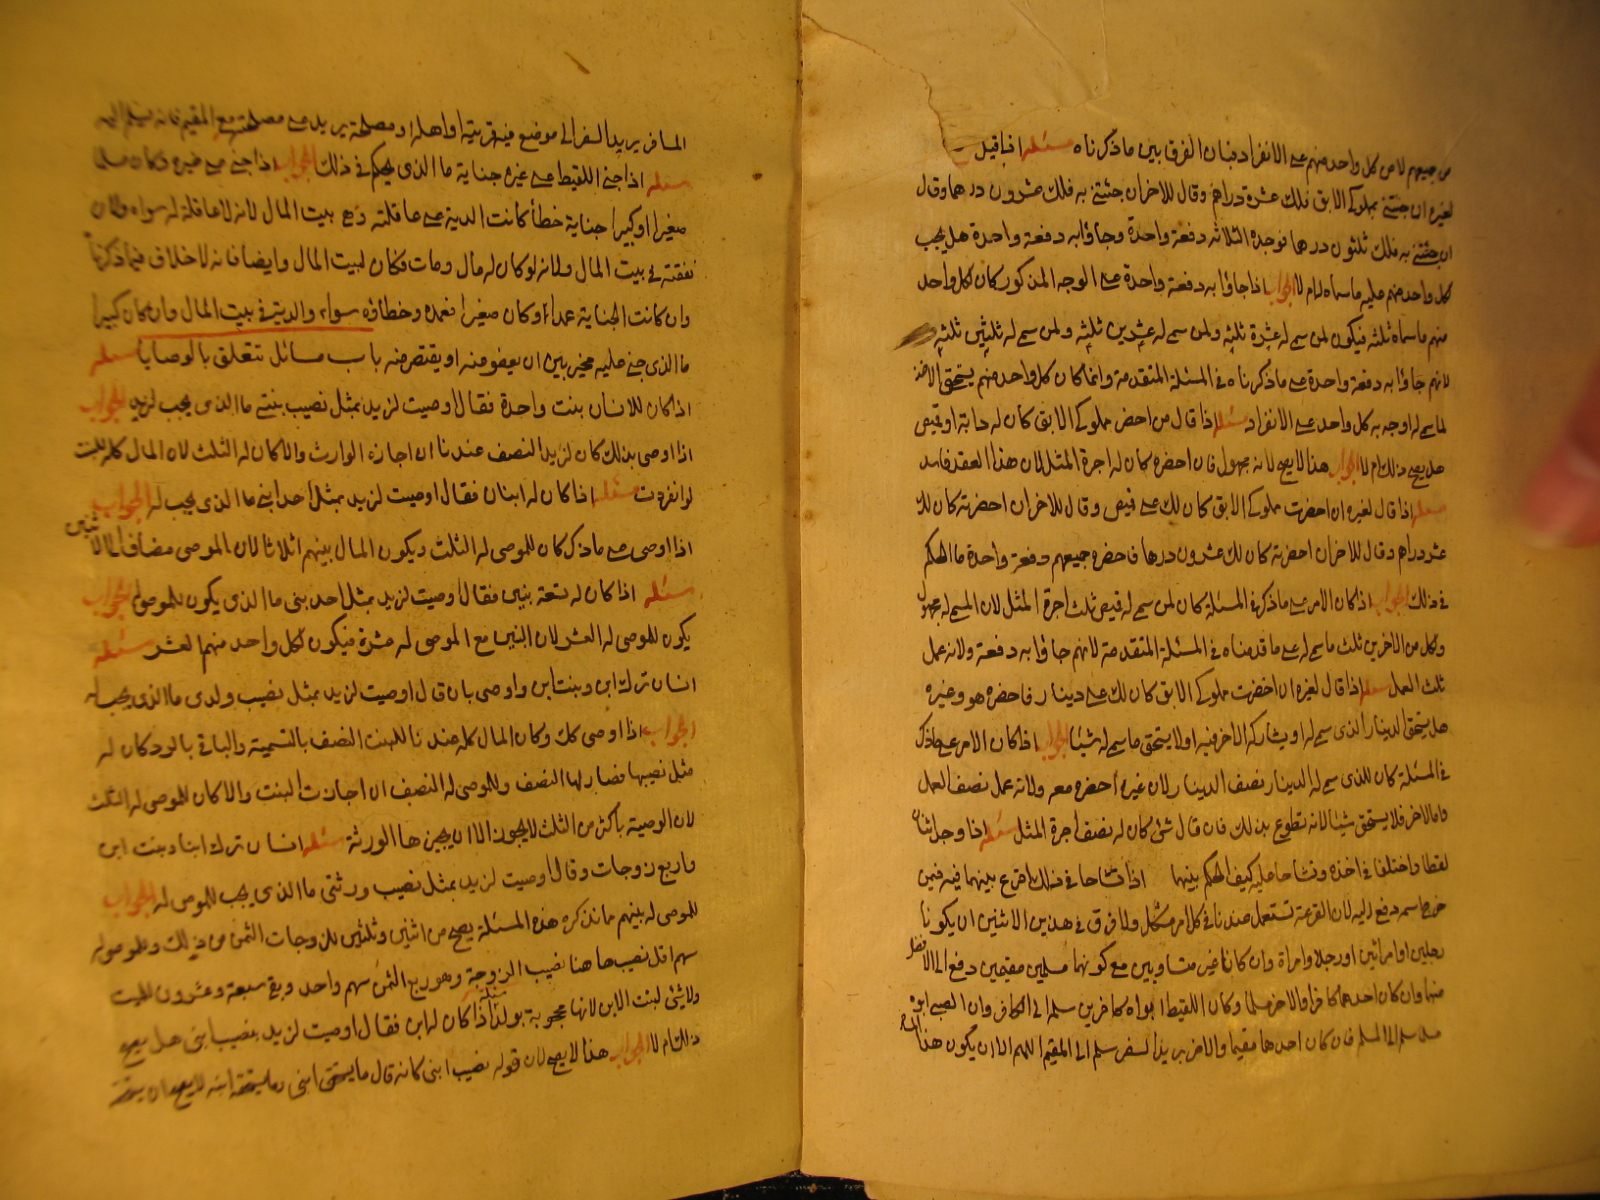 من جميعهم لا من كل واحد منهم على الانفراد فبان الفرق بين ما ذكرناه مسئله اذا قيل
لغيره ان جئتنى بمملوكى الابق فلك عشرة دراهم وقال للاخر ان جئتنى به فلك عشرون درهما وقال
ان جئتنى به فلك ثلثون درهما فوجده الثلاثه دفعة واحدة وجاؤا به دفعة واحدة هل يجب
لكل واحد منهم عليه ما سماه له ام لا الجواب اذا جاؤا به دفعة واحدة على الوجه المذكور كان لكل واحد
منهم ما سماه ثلثه فيكون لمن سمى له عشرة ثلثه ولمن سمى له عشرين ثلثه ولمن سمى له ثلثين ثلثه
لانهم جاؤا به دفعة واحدة على ما ذكرناه فى المسئلة المتقدمة وانما كان كل واحد منهم يستحق الاخذ
لما سمى له اوجه به كل واحد على الانفراد مسئله اذا قال من احضر مملوكى الابق كان له دابة او قميص
هل يصح ذلك ام لا الجواب هذا لا يصح لانه مجهول فان احضره كان له اجرة المثل لان هذا العقد فاسد
مسئله اذا قال لغيره ان احضرت مملوكى الابق كان لك على قميص وقال للاخر ان احضرته كان لك
عشر دراهم وقال للاخر ان احضرته كان لك عشرون درهما فاحضره جميعهم دفعة واحدة ما الحكم
فى ذلك الجواب اذا كان الامر على ما ذكر فى المسئلة كان لمن سمى له قميص ثلث اجرة المثل لان المسمى له مجهول
ولكل من الاخرين ثلث ما سمى له على ما قدمناه فى المسئلة المتقدمة لانهم جاؤا به دفعة ولانه عمل
ثلث العمل مسئله اذا قال لغيره ان احضرت مملوكى الابق كان لك على دينار فاحضره هو وغيره
هل يستحق الدينار الذى سمى له او يشاركه الاخر فيه او لا يستحق ما سمى له شيئا الجواب اذا كان الامر على ما ذكر
فى المسئلة كان للذى سمى له الدينار نصف الدينار لان غيره احضره معه ولانه عمل نصف العمل
واما الاخر فلا يستحق شيئا لانه تطوع بذلك فان قال شئ كان له نصف اجرة المثل مسئله اذا وجد اثنان
لقطا واختلفا فى اخذه وتشاحا عليه كيف الحكم بينهما اذا تشاحا فى ذلك اقرع بينهما فيه فمن
خرج اسمه دفع اليه لان القرعة تستعمل عندنا فى كل امر مشكل ولا فرق فى هذين الاثنين ان يكونا
رجلين او امراتين او رجلا وامراة وان كانا غير متساويين مع كونهما مسلمين مقيمين دفع الى الافضل
منهما وان كان احدهما كافرا والاخر مسلما وكان اللقيط ابواه كافرين سلم الى الكافر وان الصبى ابوه
مسلم سلم الى المسلم فان كان احدهما مقيما والاخر يريد السفر سلم الى المقيم اللهم الا ان يكون هذا
المسافر يريد السفر الى موضع فيه قريته او اهله او مصلحة يريد على مصلحته مع المقيم فانه يسلم اليه
مسئله اذا جنى اللقيط على غيره جناية ما الذى يحكم فى ذلك الجواب اذا جنى على غيره وكان
صغيرا او كبيرا جناية خطأ كانت الدية على عاقلته وهى بيت المال لانه لا عاقلة له سواه ولان
نفقته فى بيت المال ولانه لو كان له مال ومات فكان لبيت المال وايضا فانه لا خلاف فيما ذكرناه
وان كانت الجناية عمدا او كان صغيرا فعمده وخطاؤه سواء والدية فى بيت المال وان كان كبيرا
ما الذى جنى عليه مخير بين ان يعفو منه او يقتص منه باب مسائل تتعلق بالوصايا مسئله
اذا كان للانسان بنت واحدة فقال اوصيت لزيد بمثل نصيب بنتى ما الذى يجب لزيد الجواب
اذا اوصى بذلك كان لزيد النصف عندنا ان اجازه الوارث والا كان له الثلث لان المال كله للبنت
لو انفردت مسئله اذا كان له ابنان فقال اوصيت لزيد بمثل احد ابنى ما الذى يجب له الجواب
اذا اوصى على ما ذكر كان للموصى له الثلث ويكون المال بينهم اثلاثا لان الموصى مضاف الى الاثنين
مسئله اذا كان له تسعة بنين فقال اوصيت لزيد بمثل احد بنى ما الذى يكون للموصى له الجواب
يكون للموصى له العشر لان البنين مع الموصى له عشرة فيكون لكل واحد منهم العشر مسئله
انسان ترك ابن وبنت ابن واوصى بان قال اوصيت لزيد بمثل نصيب ولدى ما الذى يجب له
الجواب اذا اوصى كك وكان المال كله عندنا للبنت النصف بالتسمية والباقى بالرد كان له
مثل نصيبها فصار لها النصف وللموصى له النصف ان اجازت البنت والا كان للموصى له الثلث
لان الوصية باكثر من الثلث لا يجوز الا ان يجيزها الورثة مسئله انسان ترك ابنا وبنت ابن
واربع زوجات وقال اوصيت لزيد بمثل نصيب ورثتى ما الذى يجب للموصى له الجواب
للموصى له بينهم ما نذكره هذه المسئلة يصح من اثنين وثلثين للزوجات الثمن من ذلك وللموصى له
سهم اقل نصيب ها هنا نصيب الزوجة وهو ربع الثمن سهم واحد وبقى سبعة وعشرون للبنت
ولا شئ لبنت الابن لانها محجوبة بولد مسئله اذا كان له ابن فقال اوصيت لزيد بنصيب ابنى هل يصح
ذلك ام لا الجواب هذا لا يصح لان قوله نصيب ابنى كانه قال ما يستحق ابنى وما يستحقه ابنه لا يصح ان يستحقه